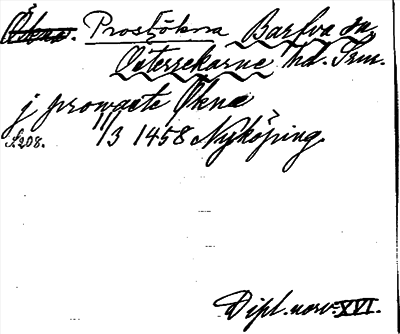 Økna. Prostökna Barfva sn
Österrekarne hd. Srm.
j prowaste Økna
S. 208. 11/3 1458 Nyköping.
Dipl. norv. XVI.